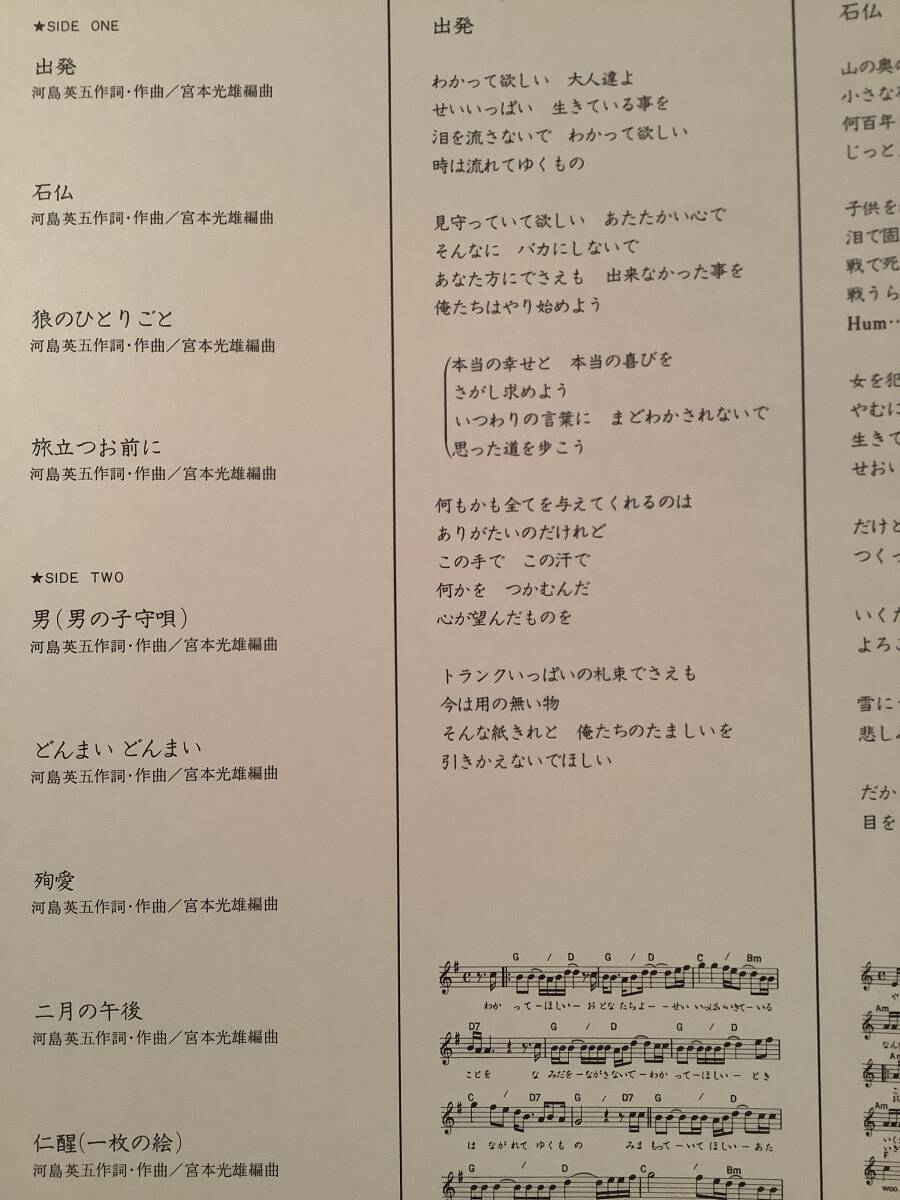 ★SIDE ONE
出発
河島英五作詞・作曲／宮本光雄編曲
石仏
河島英五作詞・作曲／宮本光雄編曲
狼のひとりごと
河島英五作詞・作曲／宮本光雄編曲
旅立つお前に
河島英五作詞・作曲／宮本光雄編曲
★SIDE TWO
男(男の子守唄)
河島英五作詞・作曲／宮本光雄編曲
どんまい どんまい
河島英五作詞・作曲／宮本光雄編曲
殉愛
河島英五作詞・作曲／宮本光雄編曲
二月の午後
河島英五作詞・作曲／宮本光雄編曲
仁醒(一枚の絵)
河島英五作詞・作曲／宮本光雄編曲
出発
わかって欲しい　大人達よ
せいいっぱい　生きている事を
泪を流さないで　わかって欲しい
時は流れてゆくもの
見守っていて欲しい　あたたかい心で
そんなに　バカにしないで
あなた方にでさえも　出来なかった事を
俺たちはやり始めよう
本当の幸せと　本当の喜びを
さがし求めよう
いつわりの言葉に　まどわかされないで
思った道を歩こう
何もかも全てを与えてくれるのは
ありがたいのだけれど
この手で　この汗で
何かを　つかむんだ
心が望んだものを
トランクいっぱいの札束でさえも
今は用の無い物
そんな紙きれと　俺たちのたましいを
引きかえないでほしい
G / D G / D C / Bm
わか って－ほしい－ おとな たちよ－ －せい いっぱい いきて－いる
D7 G / D G / D
ことを な みだを－ながさないで－わか って－ほしい－ とき
C / D7 G / D7 G / D
は ながれて ゆくも の みま もって－いて ほしい－あた
G / D C / Bm
石仏
山の奥の
小さな
何百年
じっと
子供を
泪で固
戦で死
戦うら
Hum…
女を犯
やむに
生きて
せおい
だけど
つくっ
いくた
よろこ
雪に
悲し
だか
目を
や
Am
なん
Am
Am
F
woo